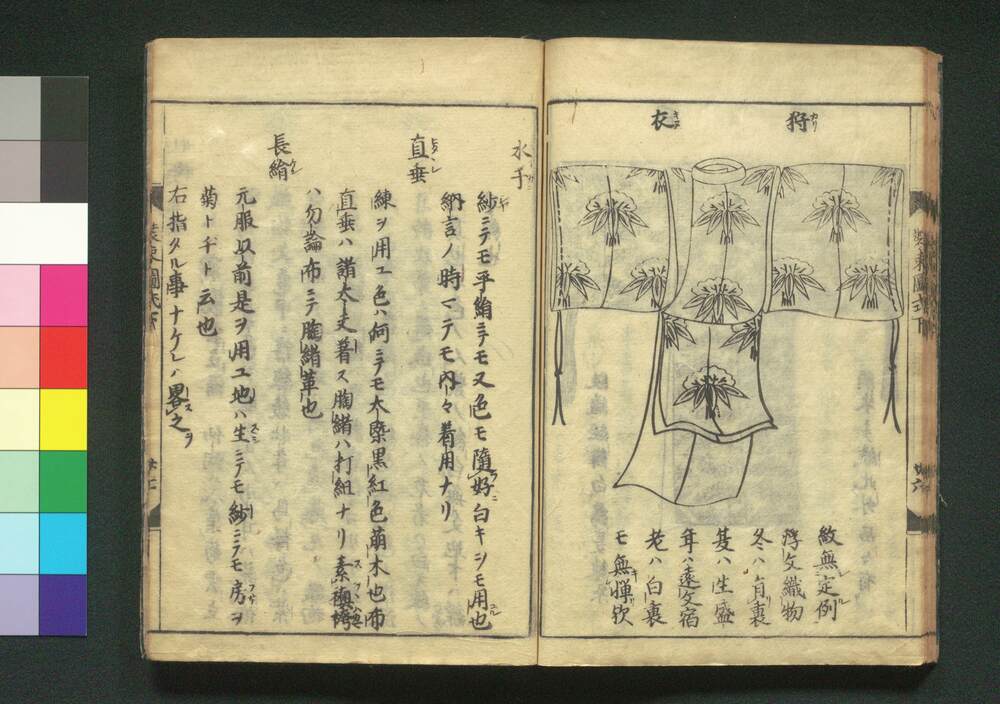 狩カリ 衣キヌ
紋無定例レ
浮文織物
冬ハ有裏リ
夏ハ生盛
年ハ遠文宿
老ハ白裏
モ無憚欤
水干
紗ニテモ平絹ニテモ又色モ隨好白キシモ用也
納言ノ時マテモ内々着用ナリ
直垂
練ヲ用ユ色ハ何ニテモ太染黒紅色萠木也布
直垂ハ諸太夫着ス胸緒ハ打組ナリ素襖袴
ハ勿論布ニテ胸緒革也
長絹
元服以前是ヲ用ユ地ハ生スヽシニテモ紗ニテモ房ヲ
菊トヂト云也
右指タル事ナケレハ畧之ヲ